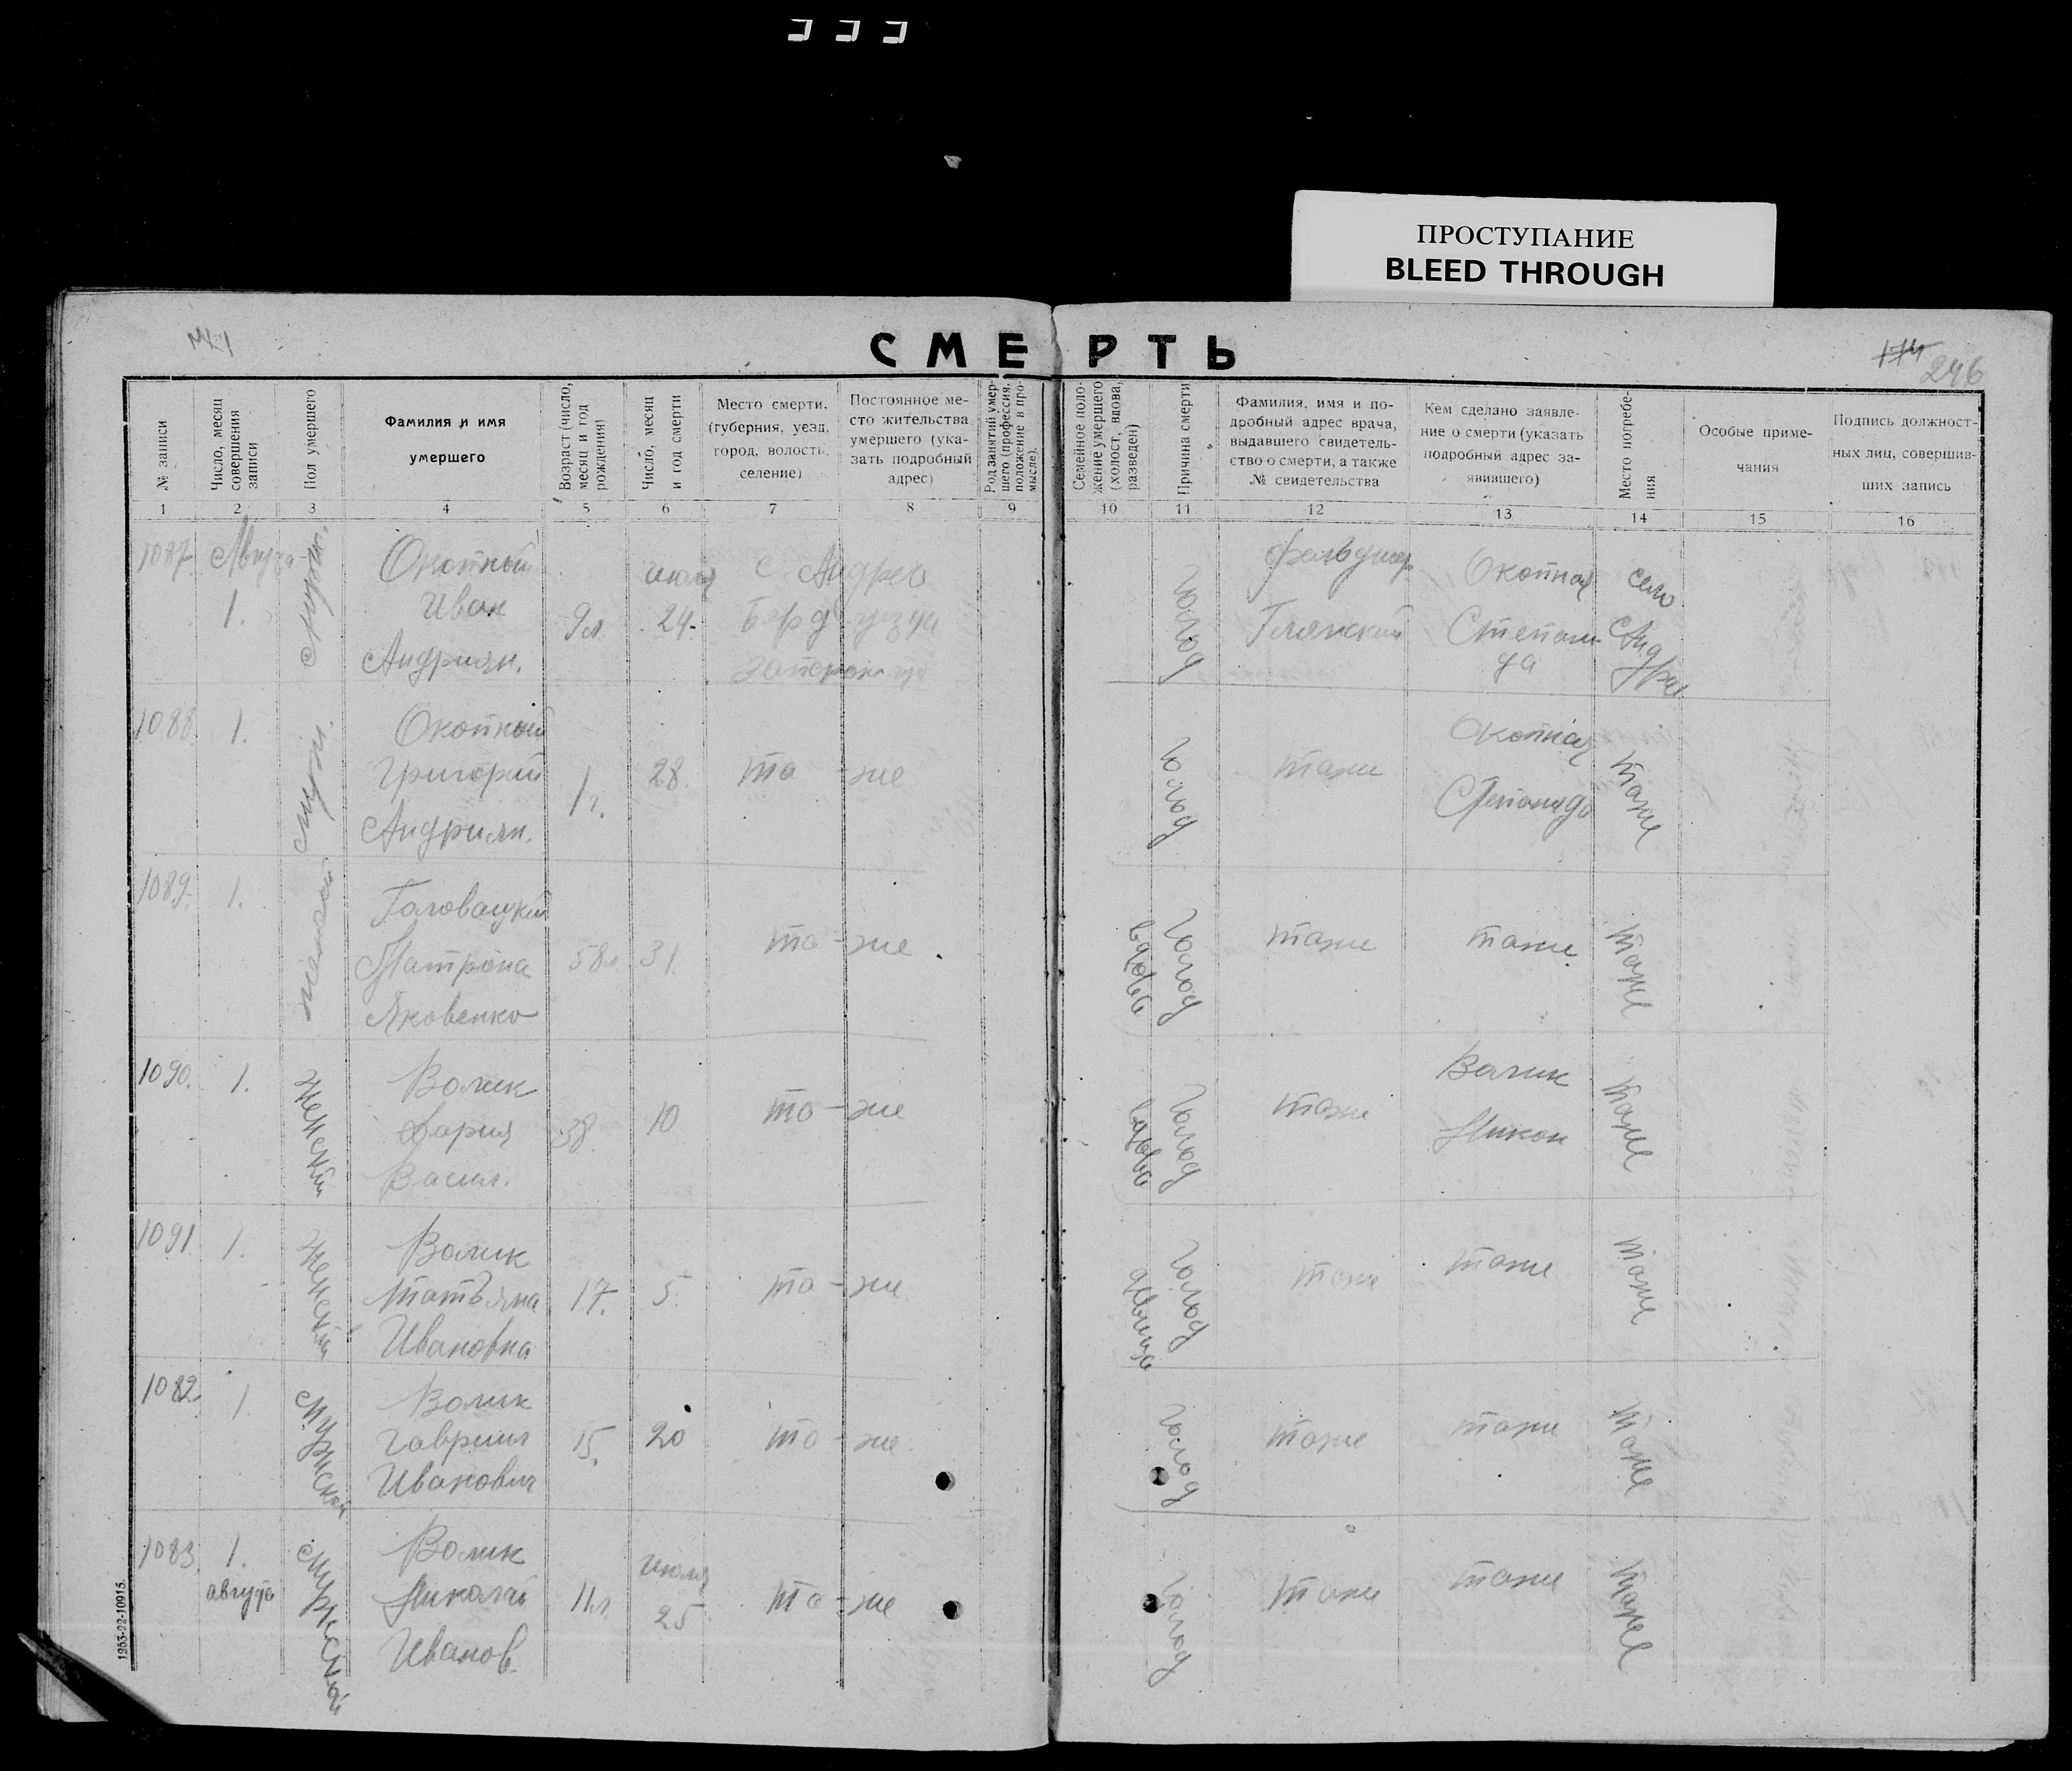 ПРОСТУПАНИЕ
BLEED THROUGH
СМЕРТЬ
246
№ записи
Число, месяц совершения записи
Пол умершего
Фамилия и имя
умершего
Возраст (число, месяц и год рождения)
Число, месяц и год смерти
Место смерти, (губерния, уезд, город, волость, селение)
Постоянное место жительства умершего (указать подробный адрес)
Род занятий умершего (профессия, положение в промысле).
Семейное положение умершего (холост, вдова, разведен)
Причина смерти
Фамилия, имя и подробный адрес врача, выдавшего свидетельство о смерти, а также № свидетельства
Кем сделано заявление о смерти (указать подробный адрес заявившего)
Место погребения
Особые примечания
Подпись должностных лиц, совершивших запись
1 2 3 4 5 6 7 8 9 10 11 12 13 14 15 16
1087 Августа 1. Мужск. Окопный Иван Андриян. 9л. июля 24. с. Андрев Берд уезда голод Окопная Степанида село Андрев
1088 1. Мужск. Окопный Григорий Андриян. 1г. 28. то-же голод тоже Окопная Степанида тоже
1089. 1. Головацкий Матрона Яковенко 58л 31 то-же вдова голод тоже тоже тоже
1090. 1. женский Волик Дария Васил. 38. 10 то-же вдова голод тоже Волик Никон тоже
1091 1. женский Волик Татьяна Ивановна 17. 5. то-же девица голод тоже тоже тоже
1082 1 Мужской Волик Гавриил Иванович 15. 20 то-же голод тоже тоже тоже
1083 1. августа Мужской Волик Николай Иванов. 11л. июля 25 то-же голод тоже тоже тоже
1253-22-10915.